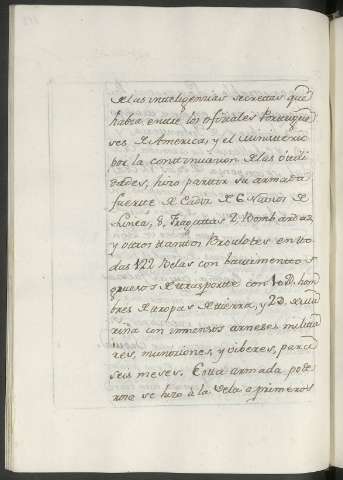 de las inteligencias secretas que
habia entre los oficiales Portugue
ses de America, y el Ministerio
por la continuacion de las
dades, hizo partir su armada
fuerte de Cadiz de 6 Navios de
Linea, 8 Fragattas 2 Bombardas,
y otros tantos Brulotes en to
das 122 Velas con bastimentos
gruesos de trasporte con D. hom
bres de tropas de tierra, y 2D. de Ma
rina con inmensos armeses milita
res, municiones, y viberes, para
seis meses. Esta armada pode
rosa se hizo á la Vela a primeros